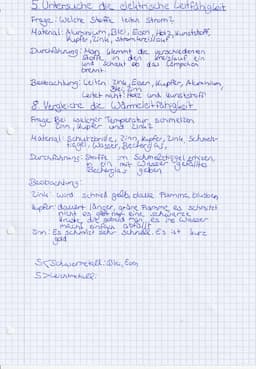 5. Untersuche die elektrische Leitfähigkeit
Frage: Welche Stoffe leiten Strom?
Material: Aluminium, Blei, Eisen, Holz, Kunststoff,
Kupfer, Zink, Stromkreislauf
Durchführung: Man klemmt die verschiedenen
Stoffe in den Kreislauf ein
und schaut ob das Lämpchen
brennt
Beobachtung: Leiten: Zink, Eisen, Kupfer, Aluminium,
Blei, Zinn
Leitet nicht: Holz und Kunststoff
8. Vergleiche die Wärmeleitfähigkeit
Frage: Bei welcher Temperatur schmelzen
Zinn, Kupfer und Zink?
Material: Schutzbrille, Zinn, Kupfer, Zink, Schmelz-
tiegel, Wasser, Becherglas,
Durchführung: Stoffe im Schmelztiegel erhitzen,
in ein mit Wasser gefülltes
Becherglas geben
Beobachtung:
Zink wird schnell
Kupfer: dauert länger, grüne Flamme, es schmilzt
nicht es eine schwarze
die sobald man es ins Wasser
macht einfach abfällt
Zinn: Es schmilzt sehr schnell. Es ist kurz
gold
5< Schwermetall: Blei, Eisen
5> Leichtmetall: